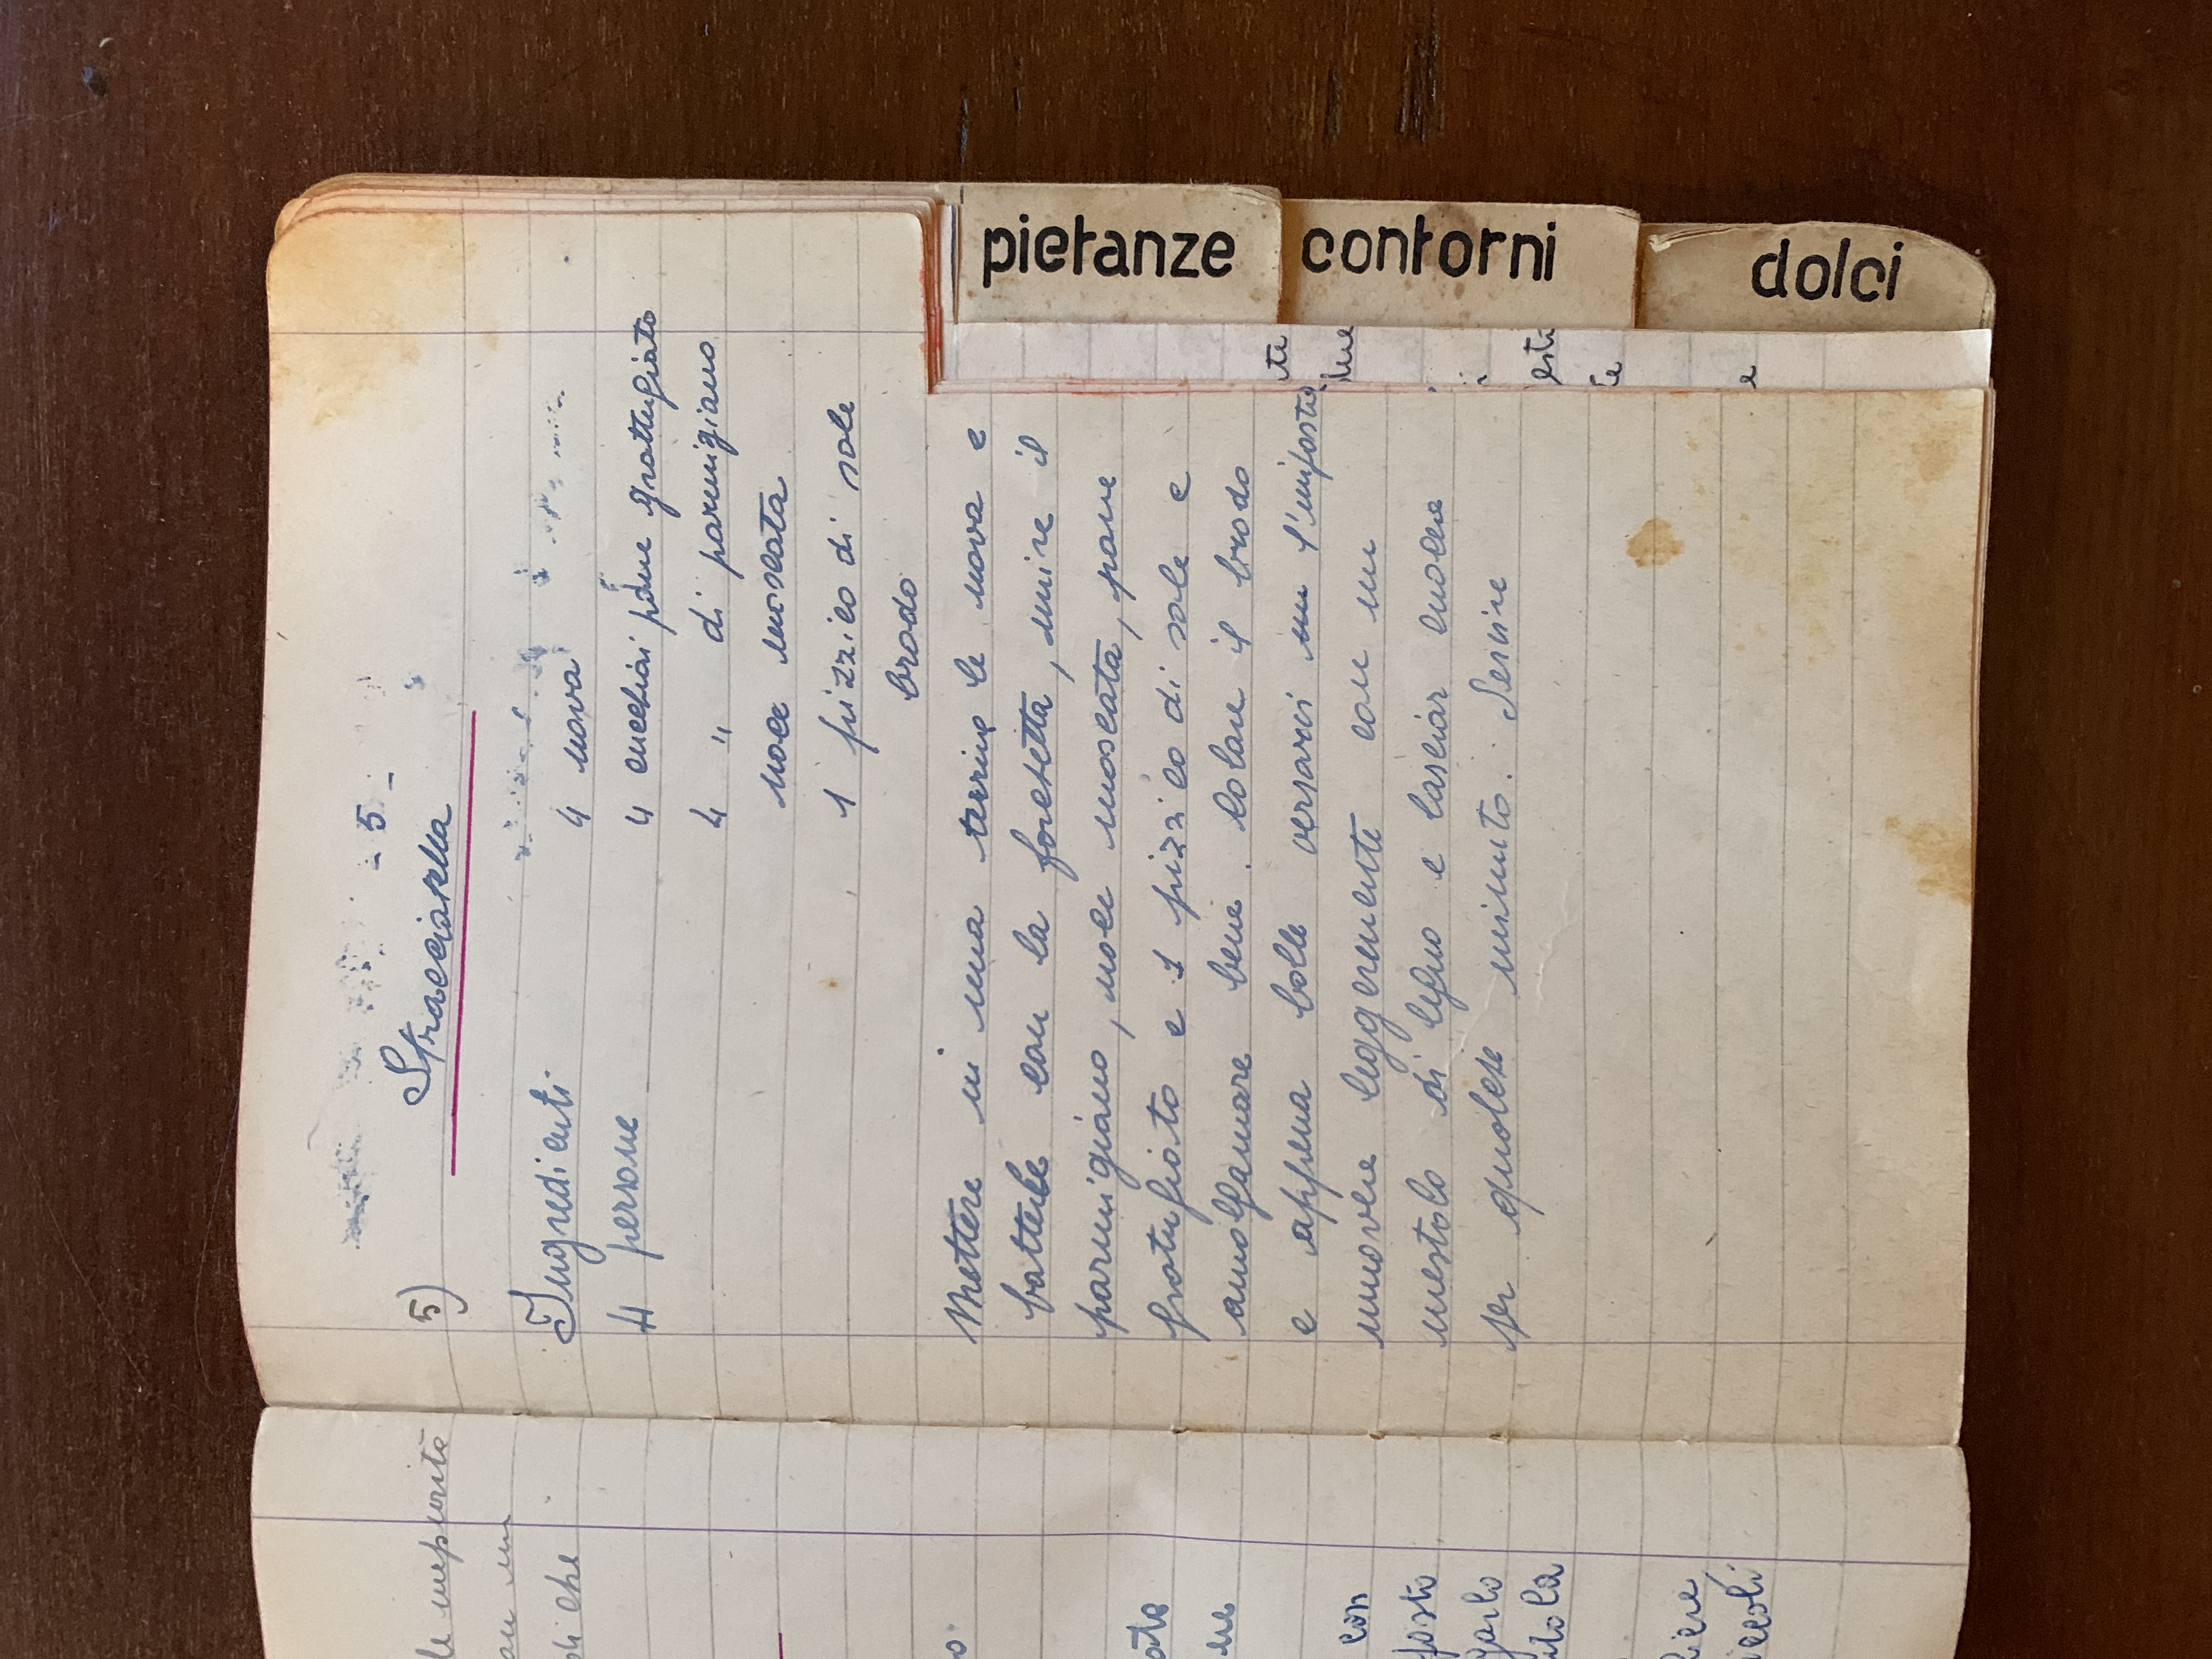 le impurità
con un
di che
o.
ata
ne
con
posto
garlo
ntola
liere,
iccoli
- 5 -
5) Stracciatella
Ingredienti
4 persone
4 uova
4 cucchiai pane grattugiato
4 " di parmigiano
noce moscata
1 pizzico di sale
brodo
Mettere in una terrina le uova e
batterle con la forchetta, unire il
parmigiano, noce moscata, pane
gratugiato e 1 pizzico di sale e
amalgamare bene. Colare il brodo
e appena bolle versarvi un l'imposto
muovere leggermente con un
mestolo di legno e lasciar cuocere
per qualche minuto. Servire
te
esti
te
e
pietanze
contorni
dolci